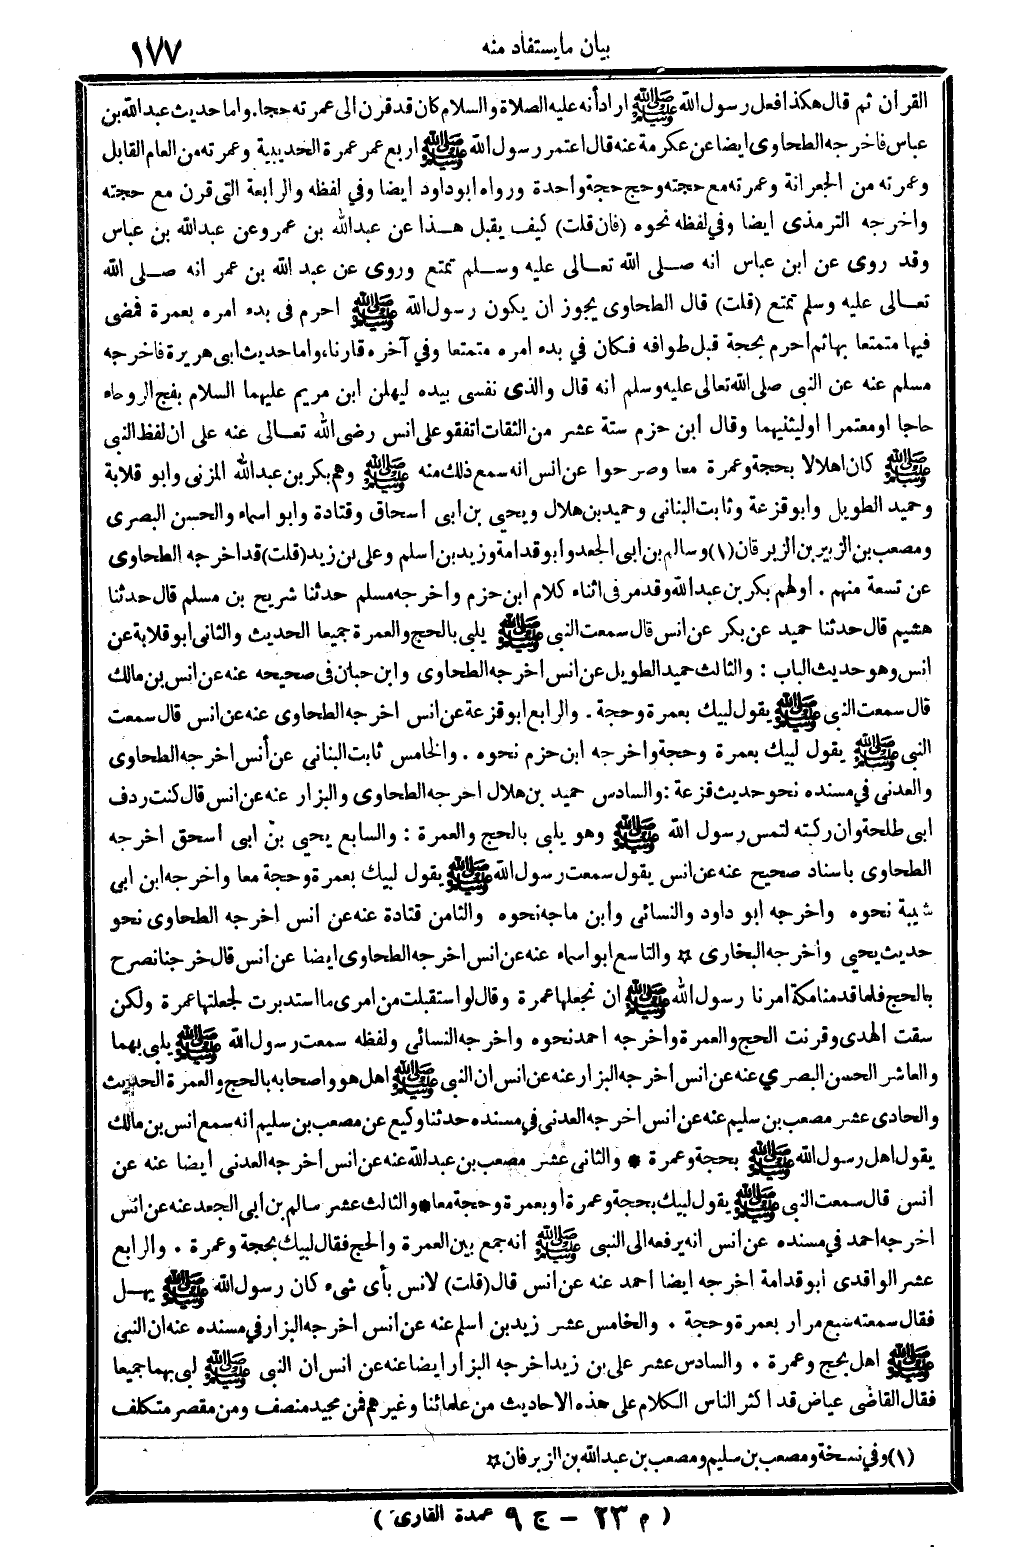 بيان ما يستفاد منه ١٧٧
القران ثم قال هكذا فعل رسول الله ﷺ اراد أنه عليه الصلاة والسلام كان قد قرن الى عمرته حجا . واما حديث عبد الله بن
عباس فاخرجه الطحاوى ايضا عن عكرمة عنه قال اعتمر رسول الله ﷺ اربع عمر عمرة الحديبية وعمرته من العام القابل
وعمرته من الجعرانة وعمرته مع حجته وحج حجة واحدة ورواه ابو داود ايضا وفي لفظه والرابعة التى قرن مع حجته
واخرجه الترمذى ايضا وفي لفظه نحوه (فان قلت) كيف يقبل هذا عن عبد الله بن عمر وعن عبد الله بن عباس
وقد روى عن ابن عباس انه صلى الله تعالى عليه وسلم تمتع وروى عن عبد الله بن عمر انه صلى الله
تعالى عليه وسلم تمتع (قلت) قال الطحاوى يجوز ان يكون رسول الله ﷺ احرم فى بدء امره بعمرة فمضى
فيها متمتعا بها ثم أحرم بحجة قبل طوافه فكان في بدء امره متمتعا وفي آخره قارنا، واما حديث ابى هريرة فاخرجه
مسلم عنه عن النبى صلى الله تعالى عليه وسلم انه قال والذى نفسى بيده ليهلن ابن مريم عليهما السلام بفج الروحاء
حاجا او معتمرا او ليثنيهما وقال ابن حزم ستة عشر من الثقات اتفقو على انس رضى الله تعالى عنه على ان لفظ النبى
ﷺ كان اهلالا بحجة وعمرة معا وصرحوا عن انس انه سمع ذلك منه ﷺ وهم بكر بن عبد الله المزنى وابو قلابة
وحميد الطويل وابو قزعة وثابت البنانى وحميد بن هلال ويحيى بن أبى أسحاق وقتادة وابو اسماء والحسن البصرى
ومصعب بن الزبير بن الزبرقان (١) وسالم بن ابى الجعد وابو قدامة وزيد بن اسلم وعلى بن زيد (قلت) قد اخرجه الطحاوى
عن تسعة منهم . اولهم بكر بن عبد الله وقد مر فى اثناء كلام ابن حزم واخرجه مسلم حدثنا شريح بن مسلم قال حدثنا
هشيم قال حدثنا حميد عن بكر عن انس قال سمعت النبى ﷺ يلبى بالحج والعمرة جميعا الحديث والثانى ابو قلابة عن
انس وهو حديث الباب : والثالث حميد الطويل عن انس اخرجه الطحاوى وابن حبان فى صحيحه عنه عن انس بن مالك
قال سمعت النبى ﷺ يقول لبيك بعمرة وحجة . والرابع ابو قزعة عن انس اخرجه الطحاوى عنه عن انس قال سمعت
النبى ﷺ يقول لبيك بعمرة وحجة واخرجه ابن حزم نحوه . والخامس ثابت البنانى عن أنس اخرجه الطحاوى
والعدنى في مسنده نحو حديث قزعة : والسادس حميد بن هلال اخرجه الطحاوى والبزار عنه عن انس قال كنت ردف
ابى طلحة وان ركبته لتمس رسول الله ﷺ وهو يلبى بالحج والعمرة : والسابع يحيى بن ابى أسحق اخرجه
الطحاوى باسناد صحيح عنه عن انس يقول سمعت رسول الله ﷺ يقول لبيك بعمرة وحجة معا واخرجه ابن ابى
شيبة نحوه واخرجه ابو داود والنسائى وابن ماجه نحوه والثامن قتادة عنه عن انس اخرجه الطحاوى نحو
حديث يحيى وأخرجه البخارى ☆ والتاسع ابو اسماء عنه عن انس اخرجه الطحاوى ايضا عن أنس قال خرجنا نصرح
بالحج فلما قدمنا مكة امرنا رسول الله ﷺ ان نجعلها عمرة وقال لو استقبلت من امرى ما استدبرت لجعلتها عمرة ولكن
سقت الهدى وقرنت الحج والعمرة واخرجه احمد نحوه واخرجه النسائى ولفظه سمعت رسول الله ﷺ يلبى بهما
والعاشر الحسن البصري عنه عن انس اخرجه البزار عنه عن انس ان النبى ﷺ اهل هو واصحابه بالحج والعمرة الحديث
والحادى عشر مصعب بن سليم عنه عن انس اخرجه العدنى في مسنده حدثنا وكيع عن مصعب بن سليم انه سمع انس بن مالك
يقول اهل رسول الله ﷺ بحجة وعمرة * والثانى عشر مصعب بن عبد الله عنه عن انس اخرجه العدنى ايضا عنه عن
أنس قال سمعت النبى ﷺ يقول لبيك بحجة وعمرة أو بعمرة وحجة معا * والثالث عشر سالم بن أبى الجعد عنه عن انس
اخرجه احمد في مسنده عن انس انه يرفعه الى النبى ﷺ انه جمع بين العمرة والحج فقال لبيك بحجة وعمرة . والرابع
عشر الواقدى ابو قدامة اخرجه ايضا احمد عنه عن انس قال (قلت) لانس بأى شىء كان رسول الله ﷺ يهل
فقال سمعته سبع مرار بعمرة وحجة . والخامس عشر زيد بن اسلم عنه عن انس اخرجه البزار في مسنده عنه ان النبى
ﷺ اهل بحج وعمرة . والسادس عشر على بن زيد اخرجه البزار ايضا عنه عن انس ان النبى ﷺ لبى بهما جميعا
فقال القاضى عياض قد اكثر الناس الكلام على هذه الاحاديث من علمائنا وغيرهم فمن مجيد منصف ومن مقصر متكلف
(١) وفي نسخة ومصعب بن سليم ومصعب بن عبد الله بن الزبرقان ☆
( م ٢٣ – ج ٩ عمدة القارى )